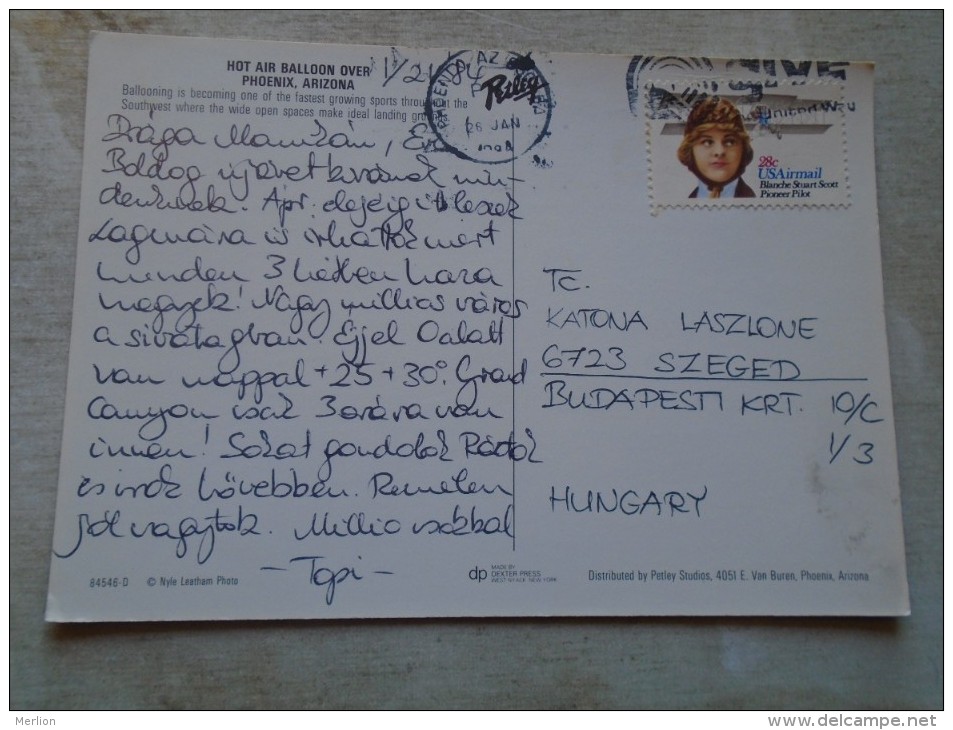 HOT AIR BALLOON OVER
PHOENIX, ARIZONA
Ballooning is becoming one of the fastest growing sports throughout the
Southwest where the wide open spaces make ideal landing
1/21/84
PHOENIX, AZ
Petley
26 JAN
28c
USAirmail
Blanche Stuart Scott
Pioneer Pilot
Drága Mamikám,
Boldog új évet kívánok min-
denkinek. Ápr. elejéig itt leszek
Lagunára is írhattok mert
minden 3 hétben haza
megyek! Nagy milliós város
a sivatagban. Éjjel 0 alatt
van nappal +25 +30°. Grand
Canyon csak 3 órára van
innen! Sokat gondolok Rátok
és írok bővebben. Remélem
jól vagytok. Millió csókkal
- Topi -
Tc.
KATONA LASZLONE
6723 SZEGED
BUDAPESTI KRT. 10/C
1/3
HUNGARY
84546-D © Nyle Leatham Photo
dp MADE BY
DEXTER PRESS
WEST NYACK, NEW YORK
Distributed by Petley Studios, 4051 E. Van Buren, Phoenix, Arizona
© Merlion
delcampe.net